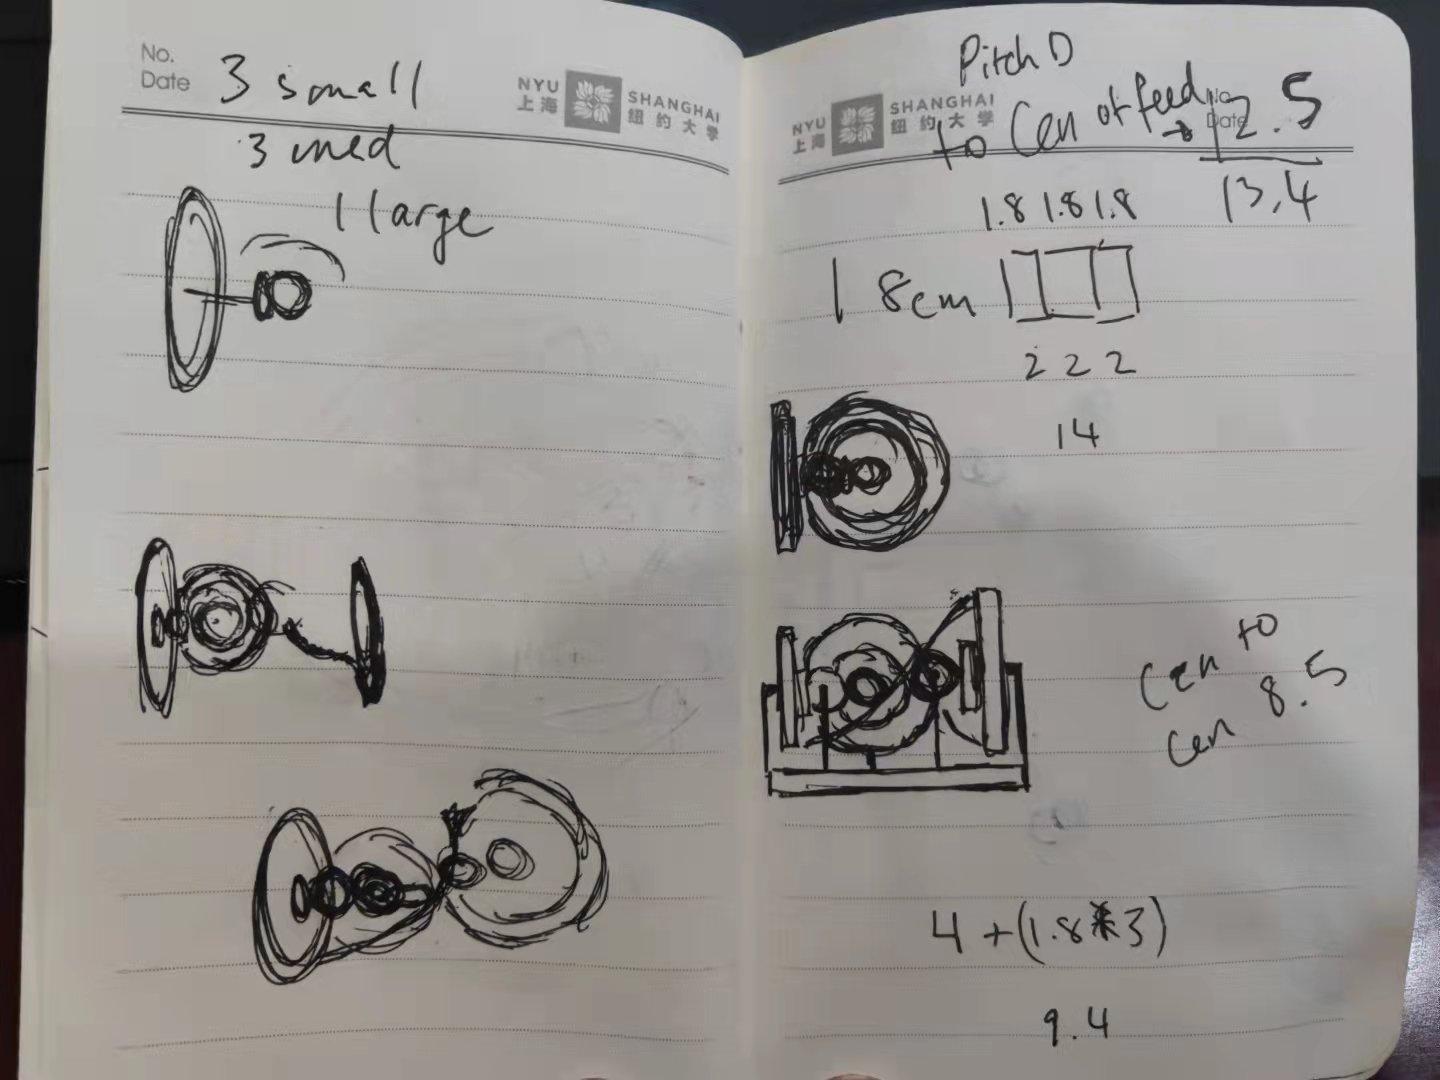 No.
Date
3 small
NYU
上海
SHANGHAI
紐約大学
3 med
1 large
Pitch D
NYU
上海
SHANGHAI
紐約大学
No.
Date
to Cen of feed → 12.5
13.4
1.8 1.8 1.8
1 8cm
2 2 2
14
Cen to
Cen 8.5
4 + (1.8*3)
9.4